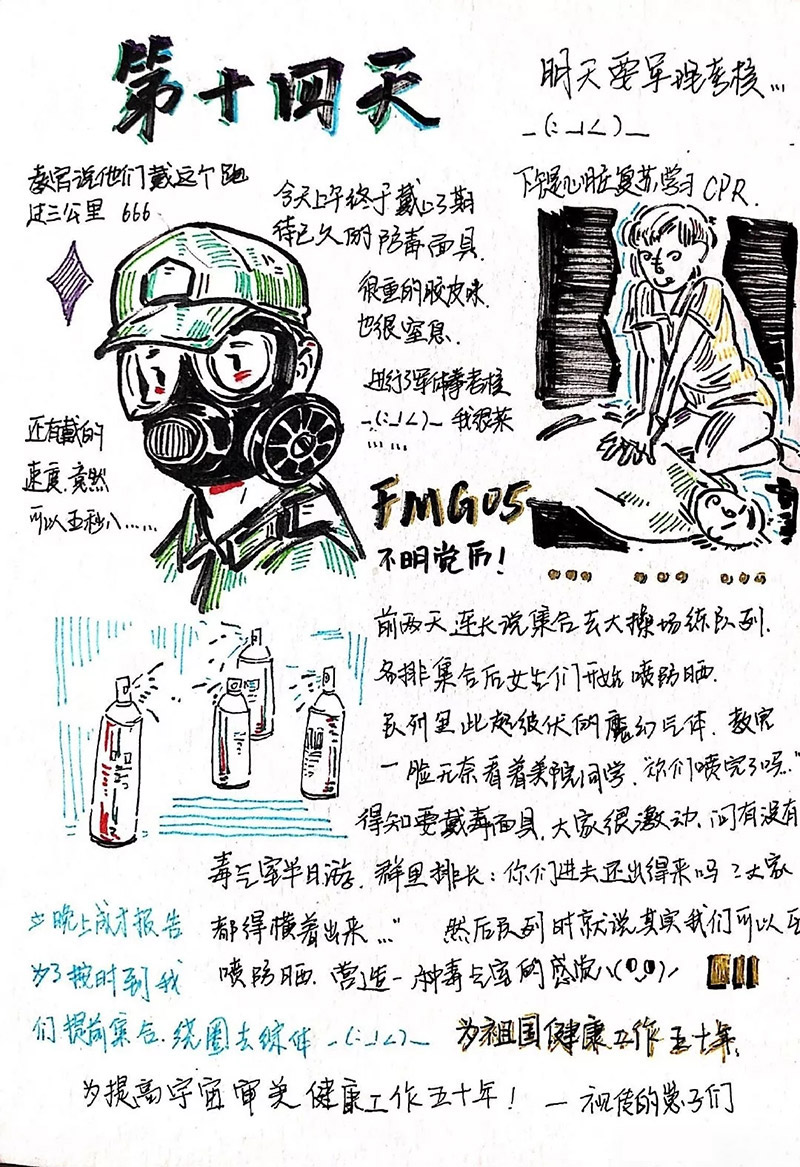 第十四天
明天要军理考核...
_(:_」∠)_
教官说他们戴这个跑
过三公里 666
今天上午终于戴上了期
待已久的防毒面具.
很重的胶皮味.
也很窒息.
进行了军体拳考核
_(:_」∠)_ 我很菜
......
还有戴的
速度.竟然
可以五秒八......
下午是心脏复苏学习 CPR.
FMG05
不明觉厉!
前两天连长说集合去大操场练队列.
各排集合后女生们开始喷防晒.
队列里此起彼伏的魔幻气体. 教官
一脸无奈看着美院同学. 你们喷完了吗.."
得知要戴毒面具. 大家很激动. 问有没有
毒气室半日游. 群里排长: 你们进去还出得来吗? 大家
都得横着出来..." 然后队列时就说其实我们可以互
喷防晒. 营造一种毒气室的感觉
晚上成才报告
为了按时到我
们提前集合. 绕圈去综体 _(:_」∠)_
为祖国健康工作五十年.
为提高宇宙审美健康工作五十年! — 视传的崽子们